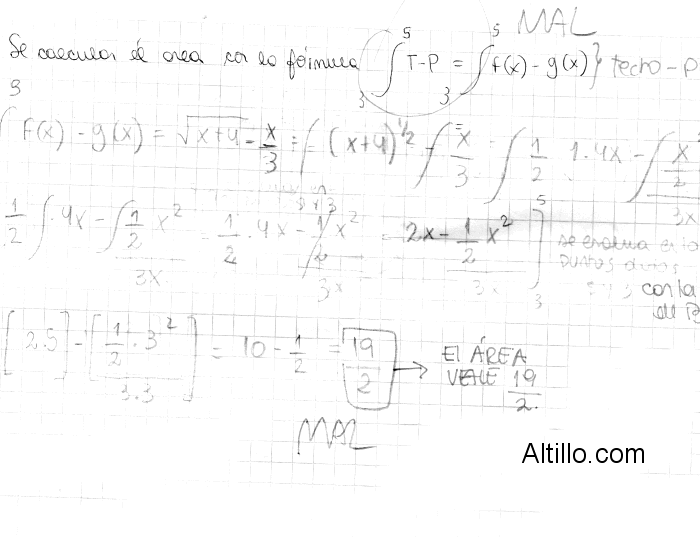 MAL
Se calcular el area con la fórmula ∫ T-P = ∫ f(x) - g(x)} techo - P
5 5
3 3
3
∫ f(x) - g(x) = √x+4 - x/3 = ∫ (x+4)^1/2 - ∫ x/3 = ∫ 1/2 1.4x - ∫ x^2/2 / 3x
1/2 ∫ .4x - ∫ 1/2 x^2 / 3x = 1/2 .4x - 1/2 x^2 / 3x = 2x - 1/2 x^2 / 3x ]
5
3
se evalua en
puntos
con la
de
[2.5] - [1/2 . 3^2 / 3.3] = 10 - 1/2 = 19/2 → El ÁREA
VALE 19/2.
MAL
Altillo.com